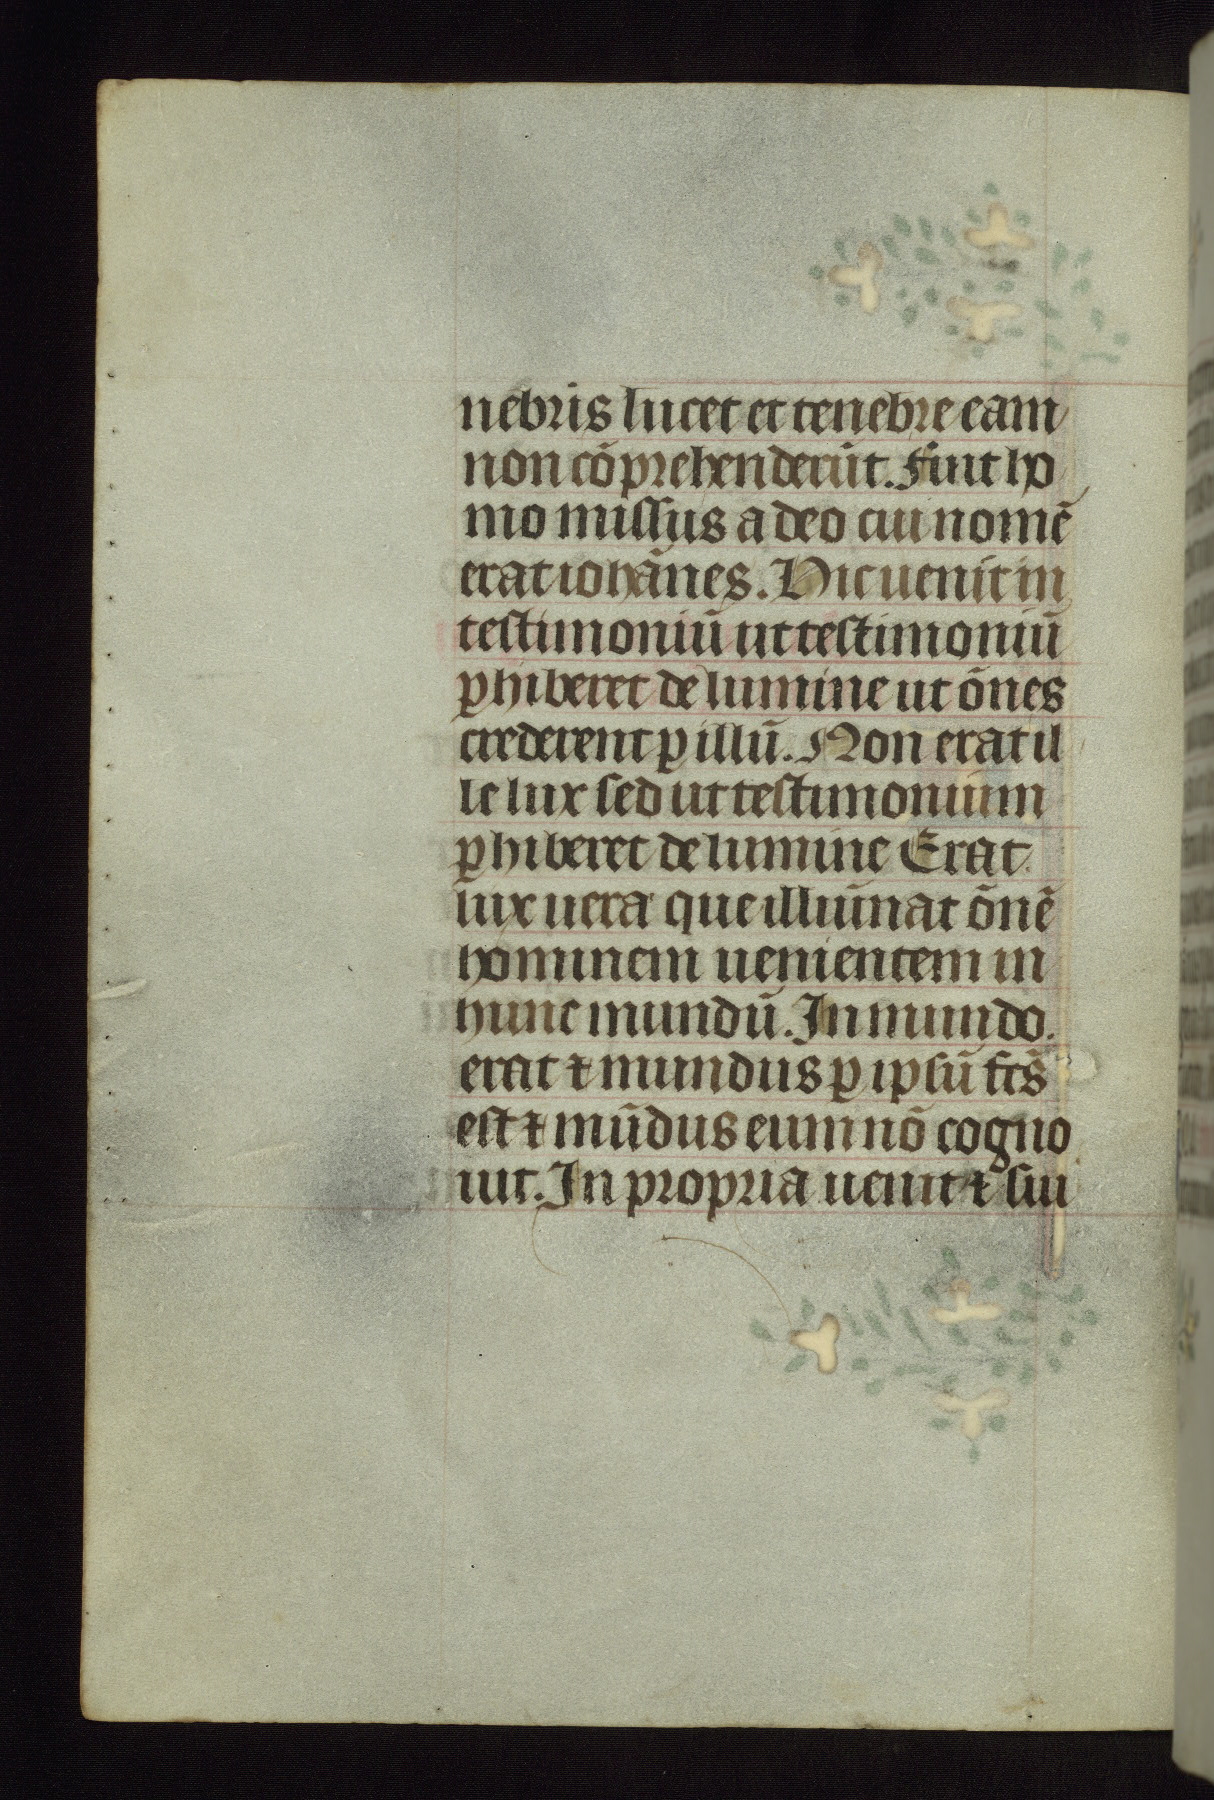 nebris lucet et tenebre eam
non cōprehenderūt. Fuit ho
mo missus a deo cui nomē
erat iohānes. Hic uenit in
testimoniū ut testimoniū
ꝑhiberet de lumine ut ōnes
crederent ꝑ illū. Non erat il
le lux sed ut testimonium
ꝑhiberet de lumine Erat
lux uera que illuīnat ōnē
hominem uenientem in
hunc mundū. In mundo.
erat ⁊ mundus ꝑ ipsū fcs̄
est ⁊ mūdus eum nō cogno
uit. In propria uenit ⁊ sui